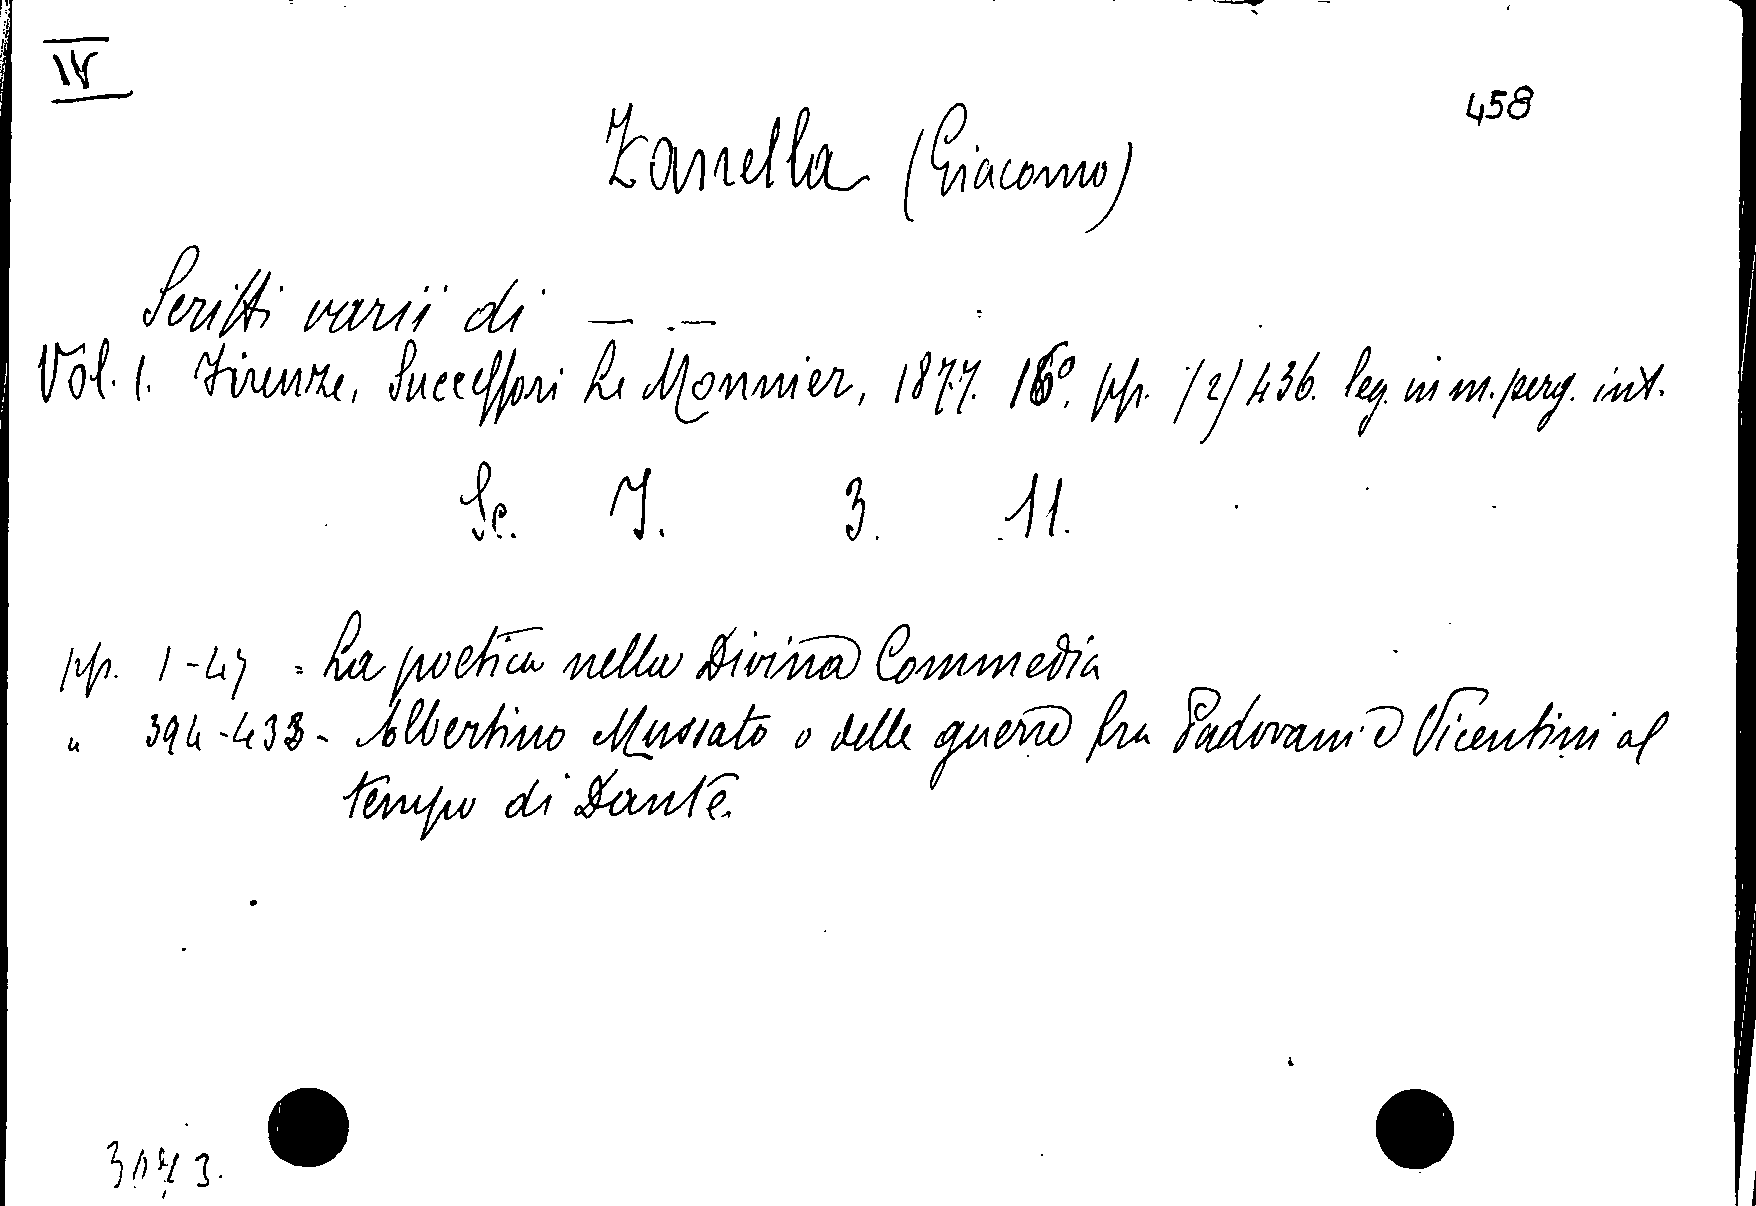 IV
458
Zanella (Giacomo)
Scritti varii di — . —
Vol. 1. Firenze, Successori Le Monnier, 1877. 16°. pp. /2/ 436. leg. in m. perg. int.
Sc. I. 3. 11.
pp. 1-47 = La poetica nella Divina Commedia
" 394-433 - Albertino Mussato o delle guerre fra Padovani e Vicentini al
tempo di Dante.